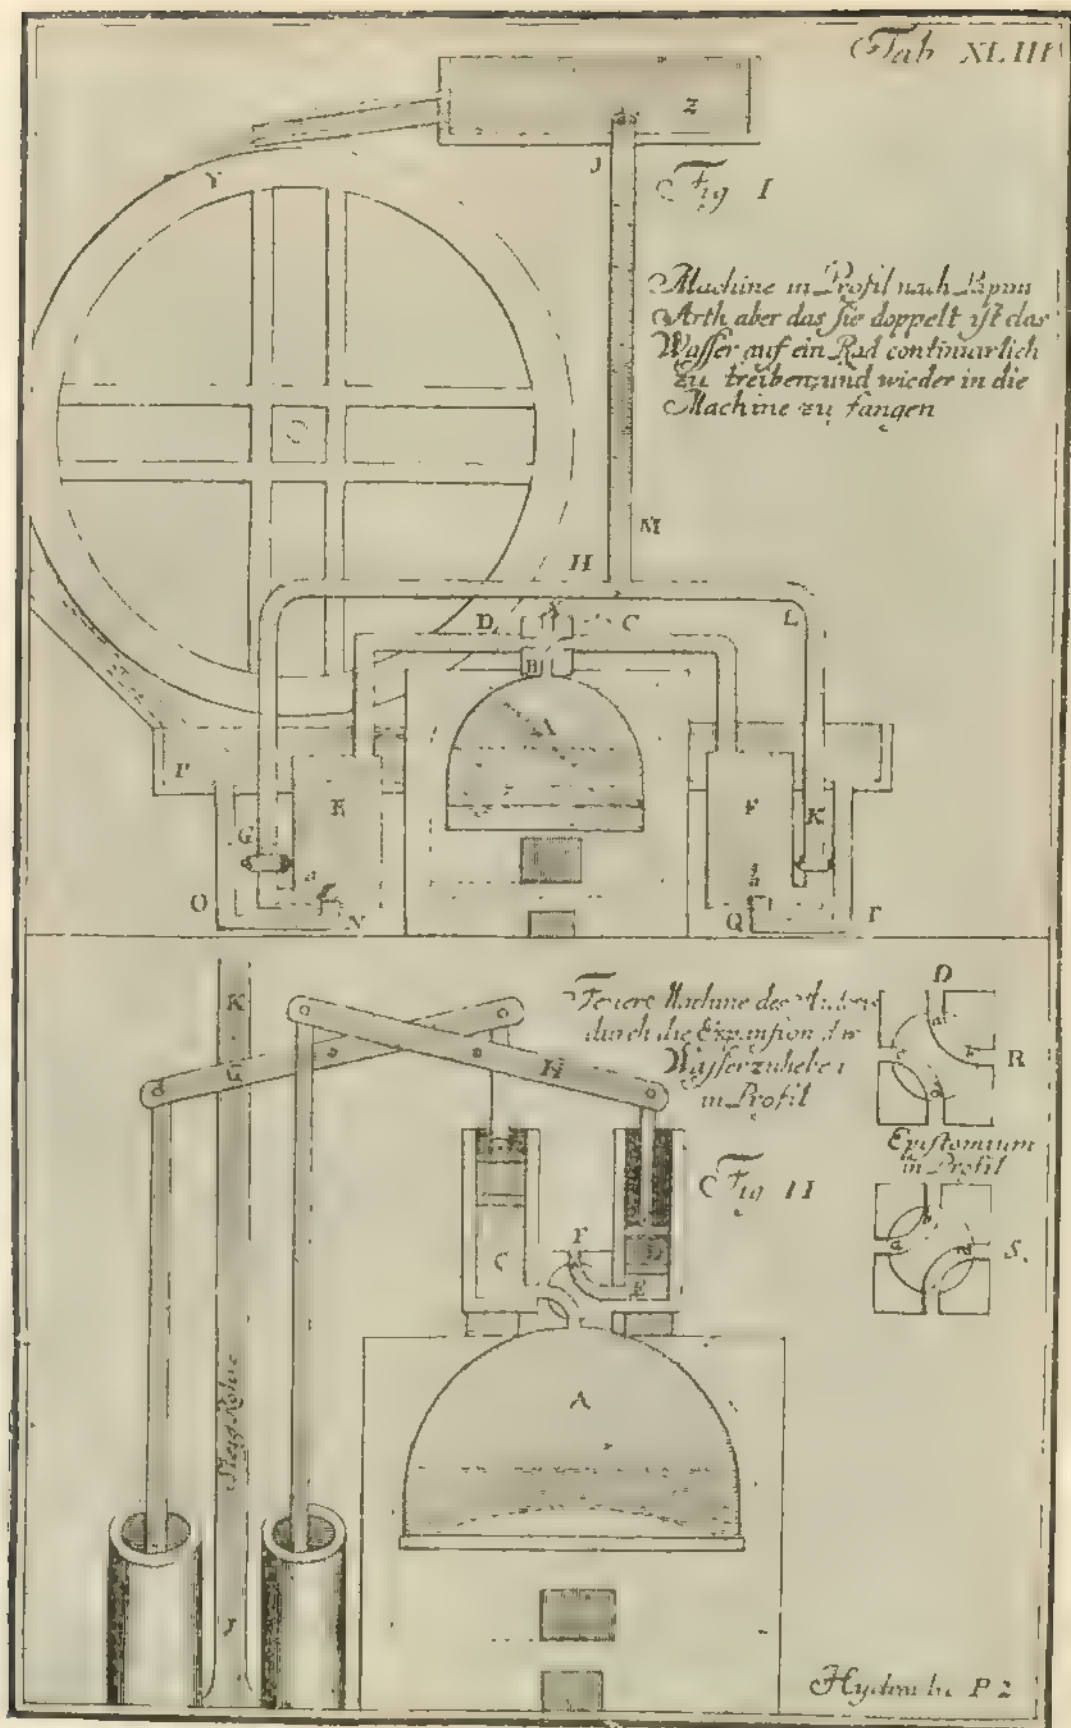 Tab XLIII
Z
J
Y
Fig I
Machine in Profil nach
Arth aber das Sie doppelt ist das
Wasser auf ein Rad continuirlich
zu treiben und wieder in die
Machine zu fangen
M
H
D
C
L
B
A
P
E
F
G
K
O
N
Q
Feuers Machine des
durch die Expansion das
Wasser zu heben
in Profil
D
R
Epistomium
in Profil
S.
Fig II
K
H
F
C
E
A
Steig Röhre
J
P 2